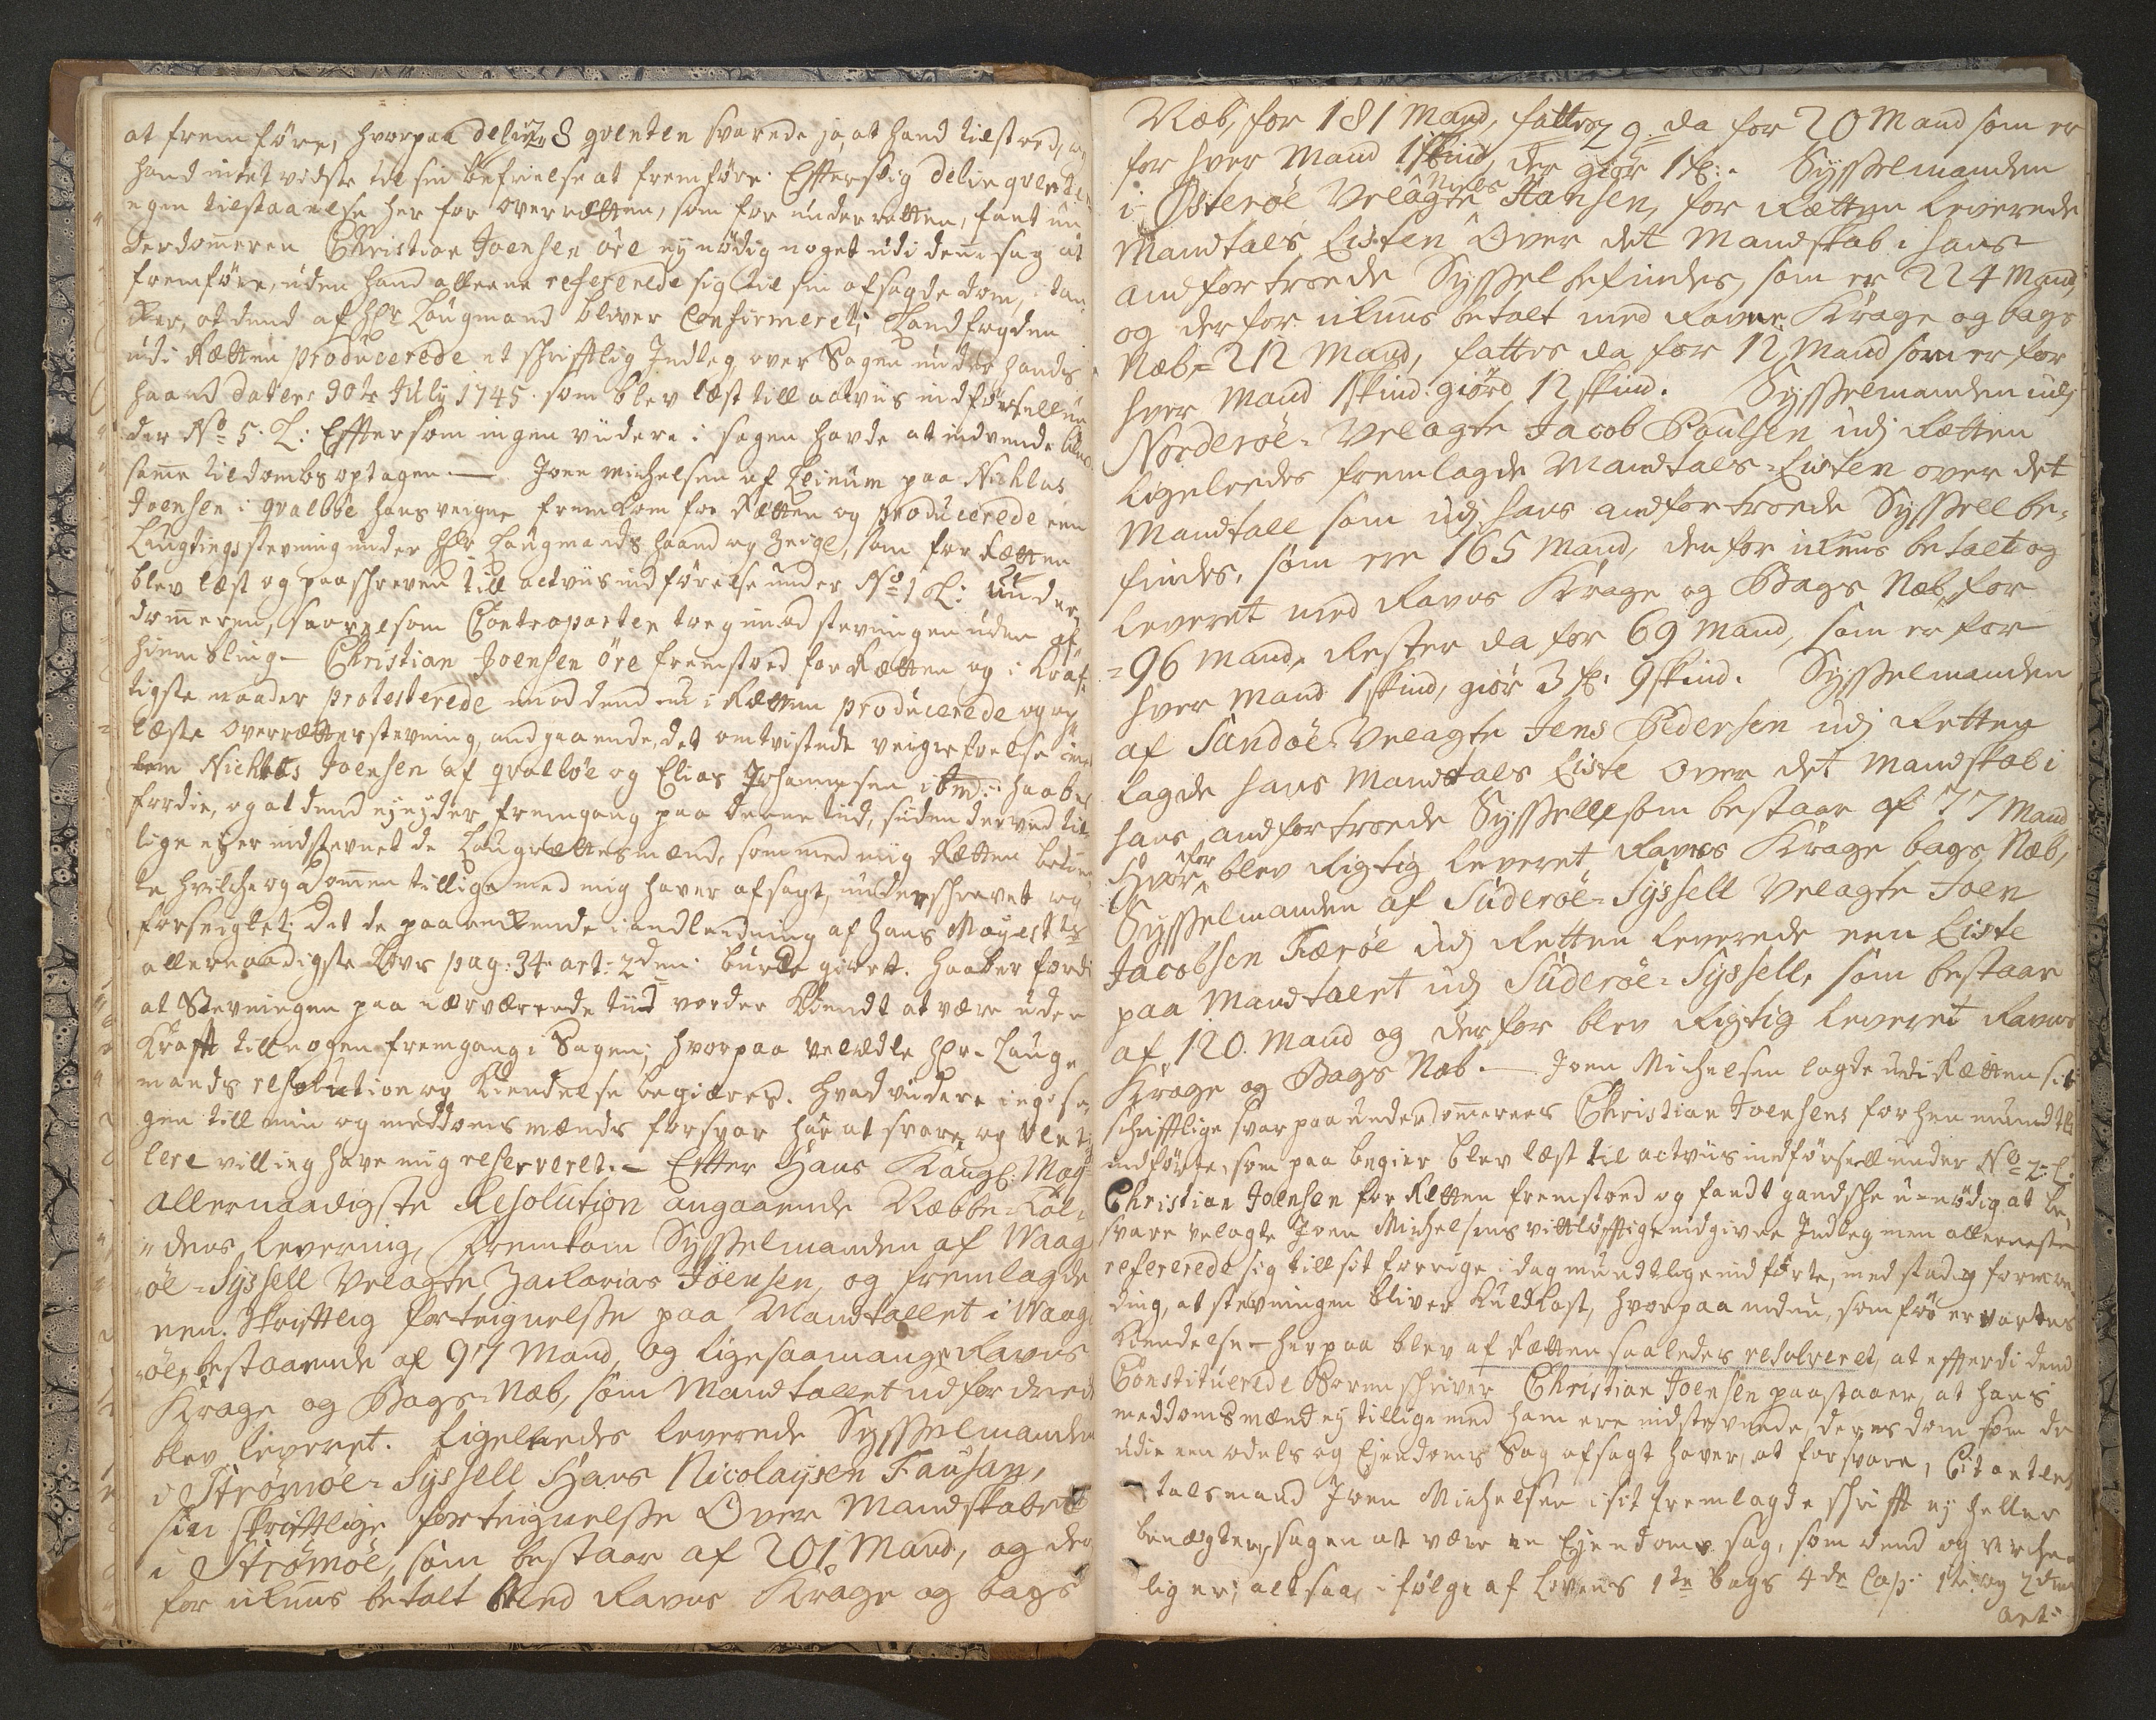 at fremføre, hvorpaa delin qventen svarede ja, at hand tilstoed, og
hand intet vidste til sin befrielse at fremføre. Effter slig delinqventens
egen tilstaaelse her for overretten, som for underretten, fant un
derdommeren Christian Joensen öre ej nödig noget udi denne sag at
fremføre, uden hand alleene refererede sig til sin afsagde dom, i tan
ker, at dend af Hr Laugmand bliver Confirmeret; Landfogden
udi Retten producerede et schrifftlig Indleg over Sagen under hands
haand dater: 30te July 1745. som blev læst till actus indförsell un
der No 5. L: Efftersom ingen viidere i sagen havde at indvende blev
samme til dombs optagen. — Joen Michelsen af Leinum paa Nichlas
Joensen i qvalböe hans veigne fremkom for Retten og producerede een
Laugtings stevning under Hr Laugmands haand og Zeigl, som for Retten
blev læst og paaschreven till actus indförelse under No 1 L: Under
dommeren, saavelsom Contraparten tog imod stevningen uden af
hiembling — Christian Joensen öre fremstoed for Retten og i kraf
tigste maader protesterede imod dend nu i Retten producerede og op
læste overrettes stevning, andgaaende det omtvistede imel
lem Nichlas Joensen af qvalböe og Elias Johannesen ibm: haaber
fordie, og at dend ej nyder fremgang paa denne tid, siden derved til
lige ej er indstevnet de Laugrettesmænd, som med mig Retten betien
te, hvilche og dommen tillige med mig haver afsagt, underschrevet og
forseiglet; det de paaanckende i andleidning af Hans Mayestts
allernaadigste Lovs pag: 34. art: 2den burde giort. Haaber fordi
at Stevningen paa nærværende tiid vorder kiendt at være uden
krafft till nogen fremgang i Sagen; hvorpaa Velædle Hr. Laug
mands resolution og kiendelse begiæres. hvad viidere ieg i sa
gen till min og meddomsmænds forsvar har at svare og
lere vill ieg have mig reserveret. — Effter Hans Kongl: May
allernaadigste Resolution angaaende Næbbe-Tol
dens levering, fremkom Sysselmanden af Waag
öe-Syssell Velagte Zacharias Joensen, og fremlagde
een skriftlig forteignelsse paa Mandtallet i Waag
öe, bestaaende af 97 Mand, og ligesaamange Ravns
Krage og Bags-Næb, som Mandtallet udfordrede
blev leveret. Ligeleedes leverede Sysselmanden
i Strømöe-Syssell Hans Nicolaysen Fausan,
sin skriftlige forteignelsse Over Mandskabet
i Strømöe, som bestaar af 201 Mand, og der
for ikuns betalt med Ravns Krage og bags
Næb, for 181 Mand, fattes da for 20 Mand som er
for hver Mand 1 skind, der giør 1 . Sysselmanden
i Österöe Velagte Niels Hansen, for Retten leverede
Mandtals Listen Over det Mandskab i hans
andfortroede Syssel befindes, som er 224 Mand
og derfor ikuns betalt med Ravne Krage og bags
Næb = 212 Mand, fattes da for 12 Mand som er for
hver Mand 1 skind giörd 12 skind. Sysselmanden udj
Norderöe-Velagte Jacob Poulsen udj Retten
Ligeleedes fremlagde Mandtals-Listen over det
Mandtall som udj hans andfortroede Syssell be-
findes, som ere 165 Mand, derfor ikuns betalt og
leveret med Ravns Krage og Bags Næb, for
= 96 Mand, Rester da for 69 Mand, som er for
hver Mand 1 skind, giør 3 9 skind. Sysselmanden
af Sandöe-Velagte Jens Pedersen udj Retten
lagde hans Mandtals Liste Over det Mandskab i
hans andfortroede Syssell som bestaar af 77 Mand
Hvorfor blev Rigtig leveret Ravns Krage bags Næb,
Sysselmanden af Süderöe-Syssell Velagte Joen
Jacobsen Færöe udj Retten leverede een Liste
paa Mandtalet udj Süderöe-Syssell, som bestaar
af 120. Mand og derfor blev Rigtig leveret Ravns
Krage og Bags Næb. — Joen Michelsen lagde udi Retten sit
schrifftlige svar paa underdommerens Christian Joensens forhen mundtl:
indförte, som paa begier blev læst til actus indførsell under No 2. L:
Christian Joensen for Retten fremstoed og fandt gandsche unödig at be
svare velagte Joen Michelsens vittløfftige indgivne Indleg men alleeneste
refererede sig till sit forrige i dag mundtlige indförte, med stadig formee
ding, at stevningen bliver kuldkast, hvorpaa endnu, som før er vartes
kiendelse — herpaa blev af Retten saaledes resolveret, at effterdi dend
Constituerede Sorenschriver Christian Joensen paastaaer, at hans
meddomsmænd ej tillige med ham ere indstevnede, deres dom som de
udi een odels og Ejendoms Sag afsagt haver, at forsvare, Citantens
talsmand Joen Michelsen i sit fremlagde schrifft ej heller
benægter, sagen at være en Ejendoms sag, som dend og verche
lig er; altsaa i følge af Lovens 1te bogs 4de Cap: 1te og 2den
art: